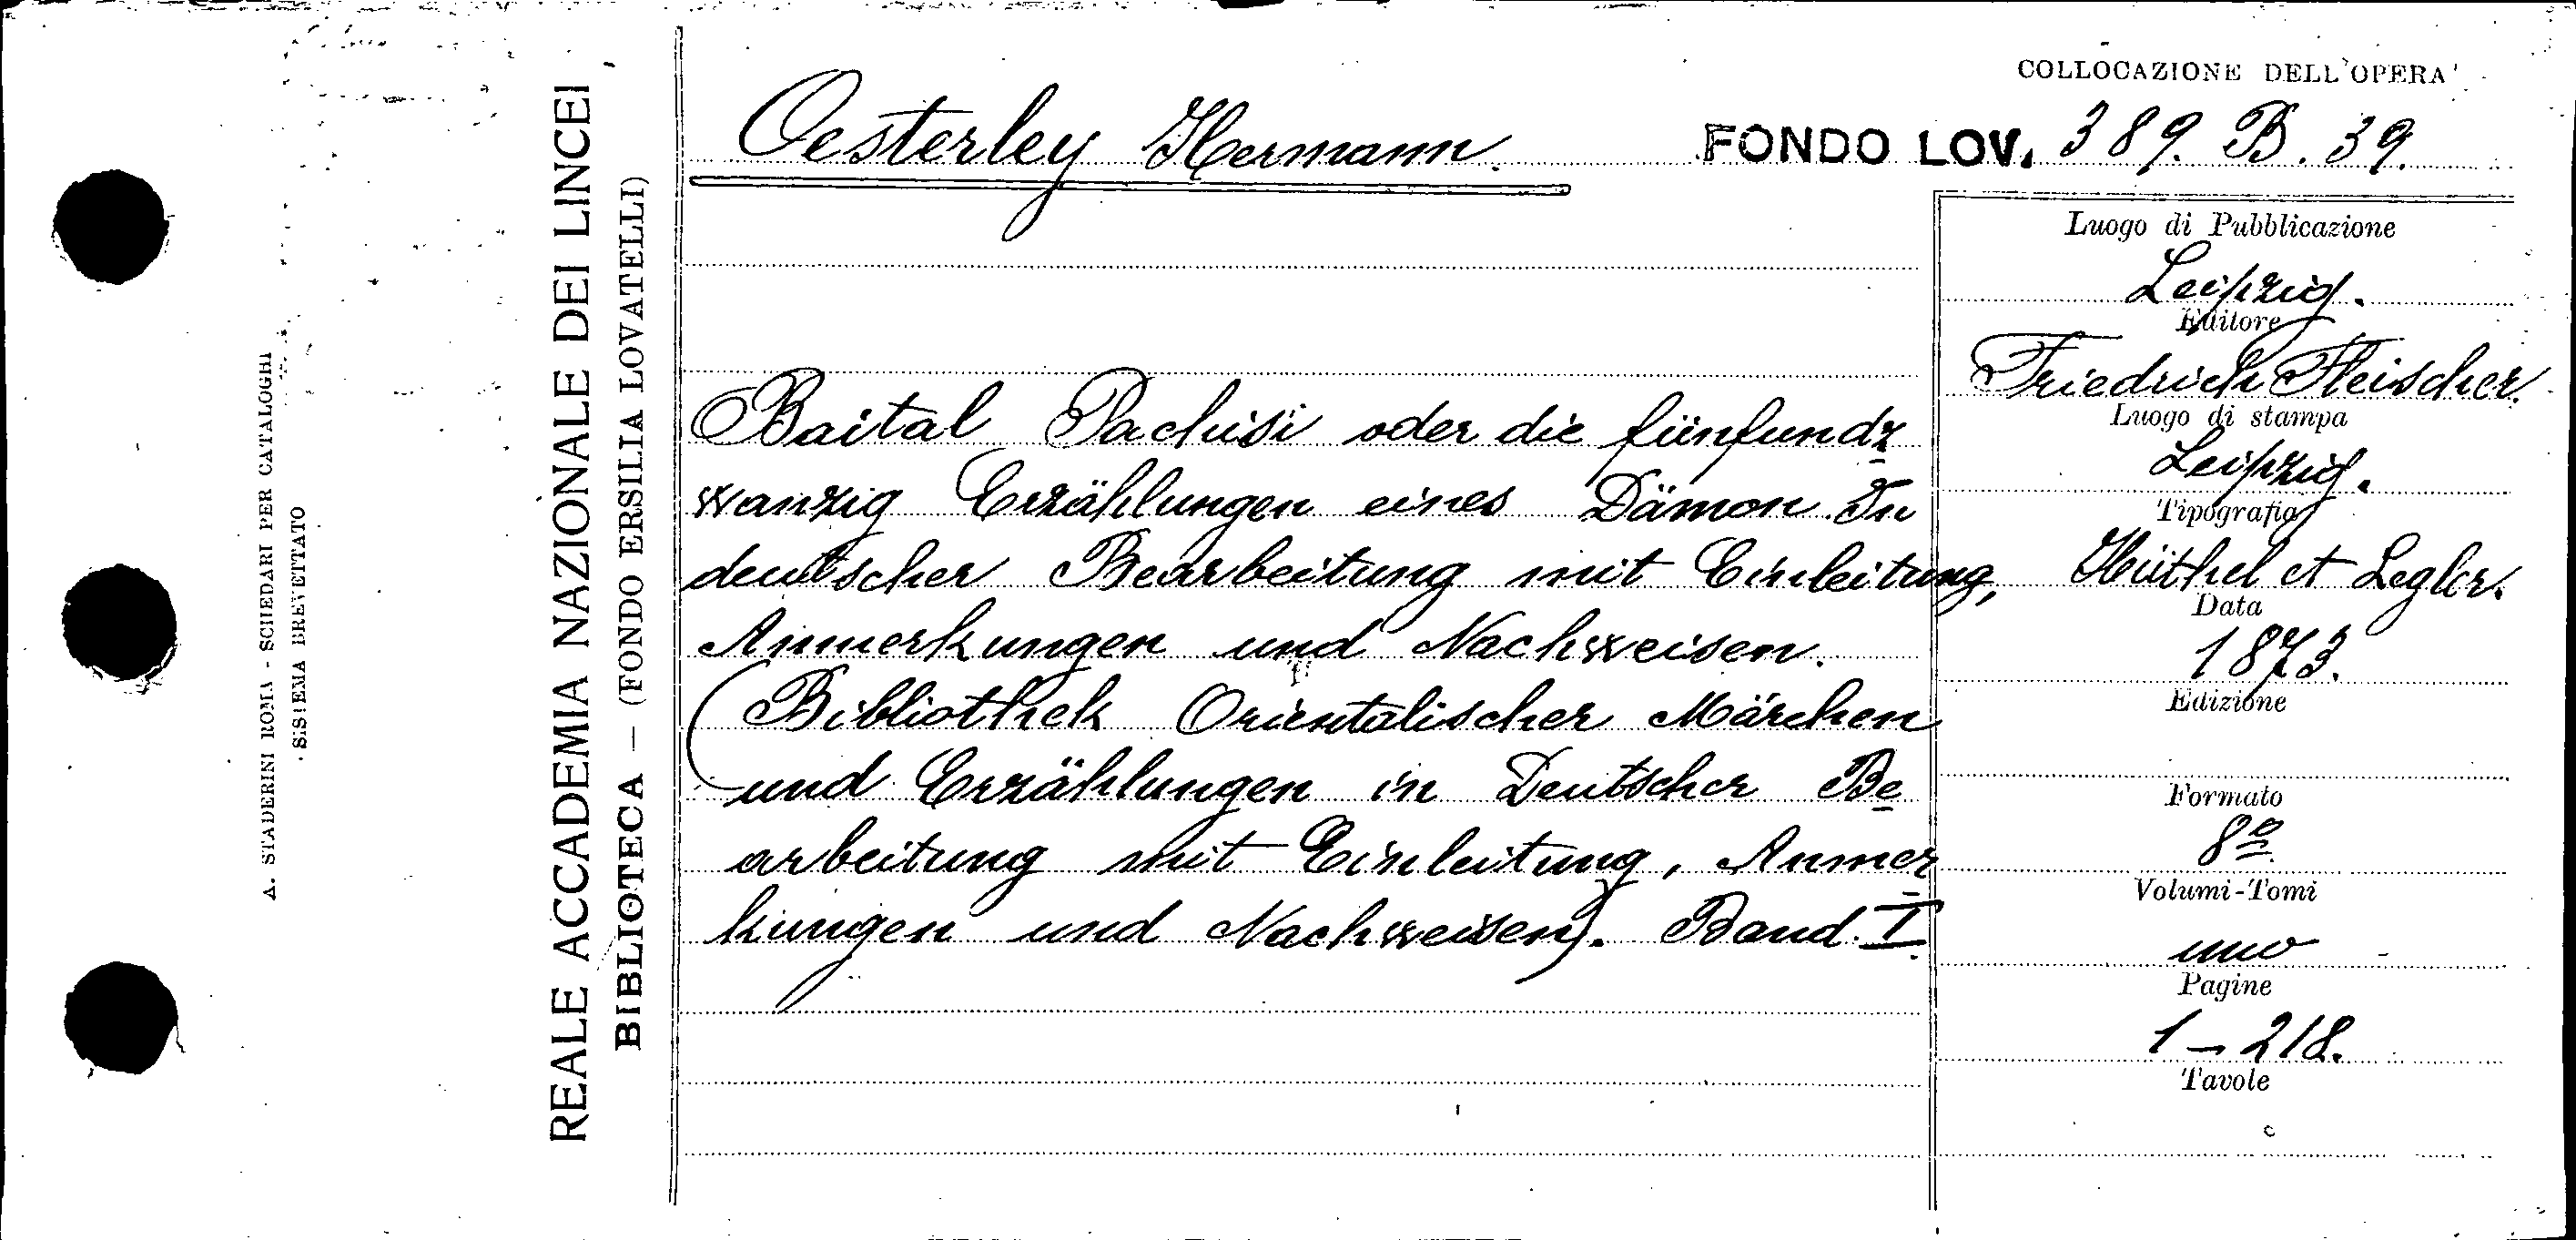 COLLOCAZIONE DELL'OPERA
Oesterley Hermann.
FONDO LOV. 389. B. 39.
Baital Pachisi oder die fünfundz
wanzig Erzählungen eines Dämon. In
deutscher Bearbeitung mit Einleitung,
Anmerkungen und Nachweisen.
(Bibliothek Orientalischer Märchen
und Erzählungen in Deutscher Be
arbeitung mit Einleitung, Anmer
kungen und Nachweisen). Band. I.
Luogo di Pubblicazione
Leipzig.
Editore
Friedrich Fleischer.
Luogo di stampa
Leipzig.
Tipografia
Hüthel et Legler.
Data
1873.
Edizione
Formato
8º
Volumi-Tomi
uno
Pagine
1 – 218.
Tavole
REALE ACCADEMIA NAZIONALE DEI LINCEI
BIBLIOTECA — (FONDO ERSILIA LOVATELLI)
A. STADERINI ROMA - SCHEDARI PER CATALOGHI
SISTEMA BREVETTATO